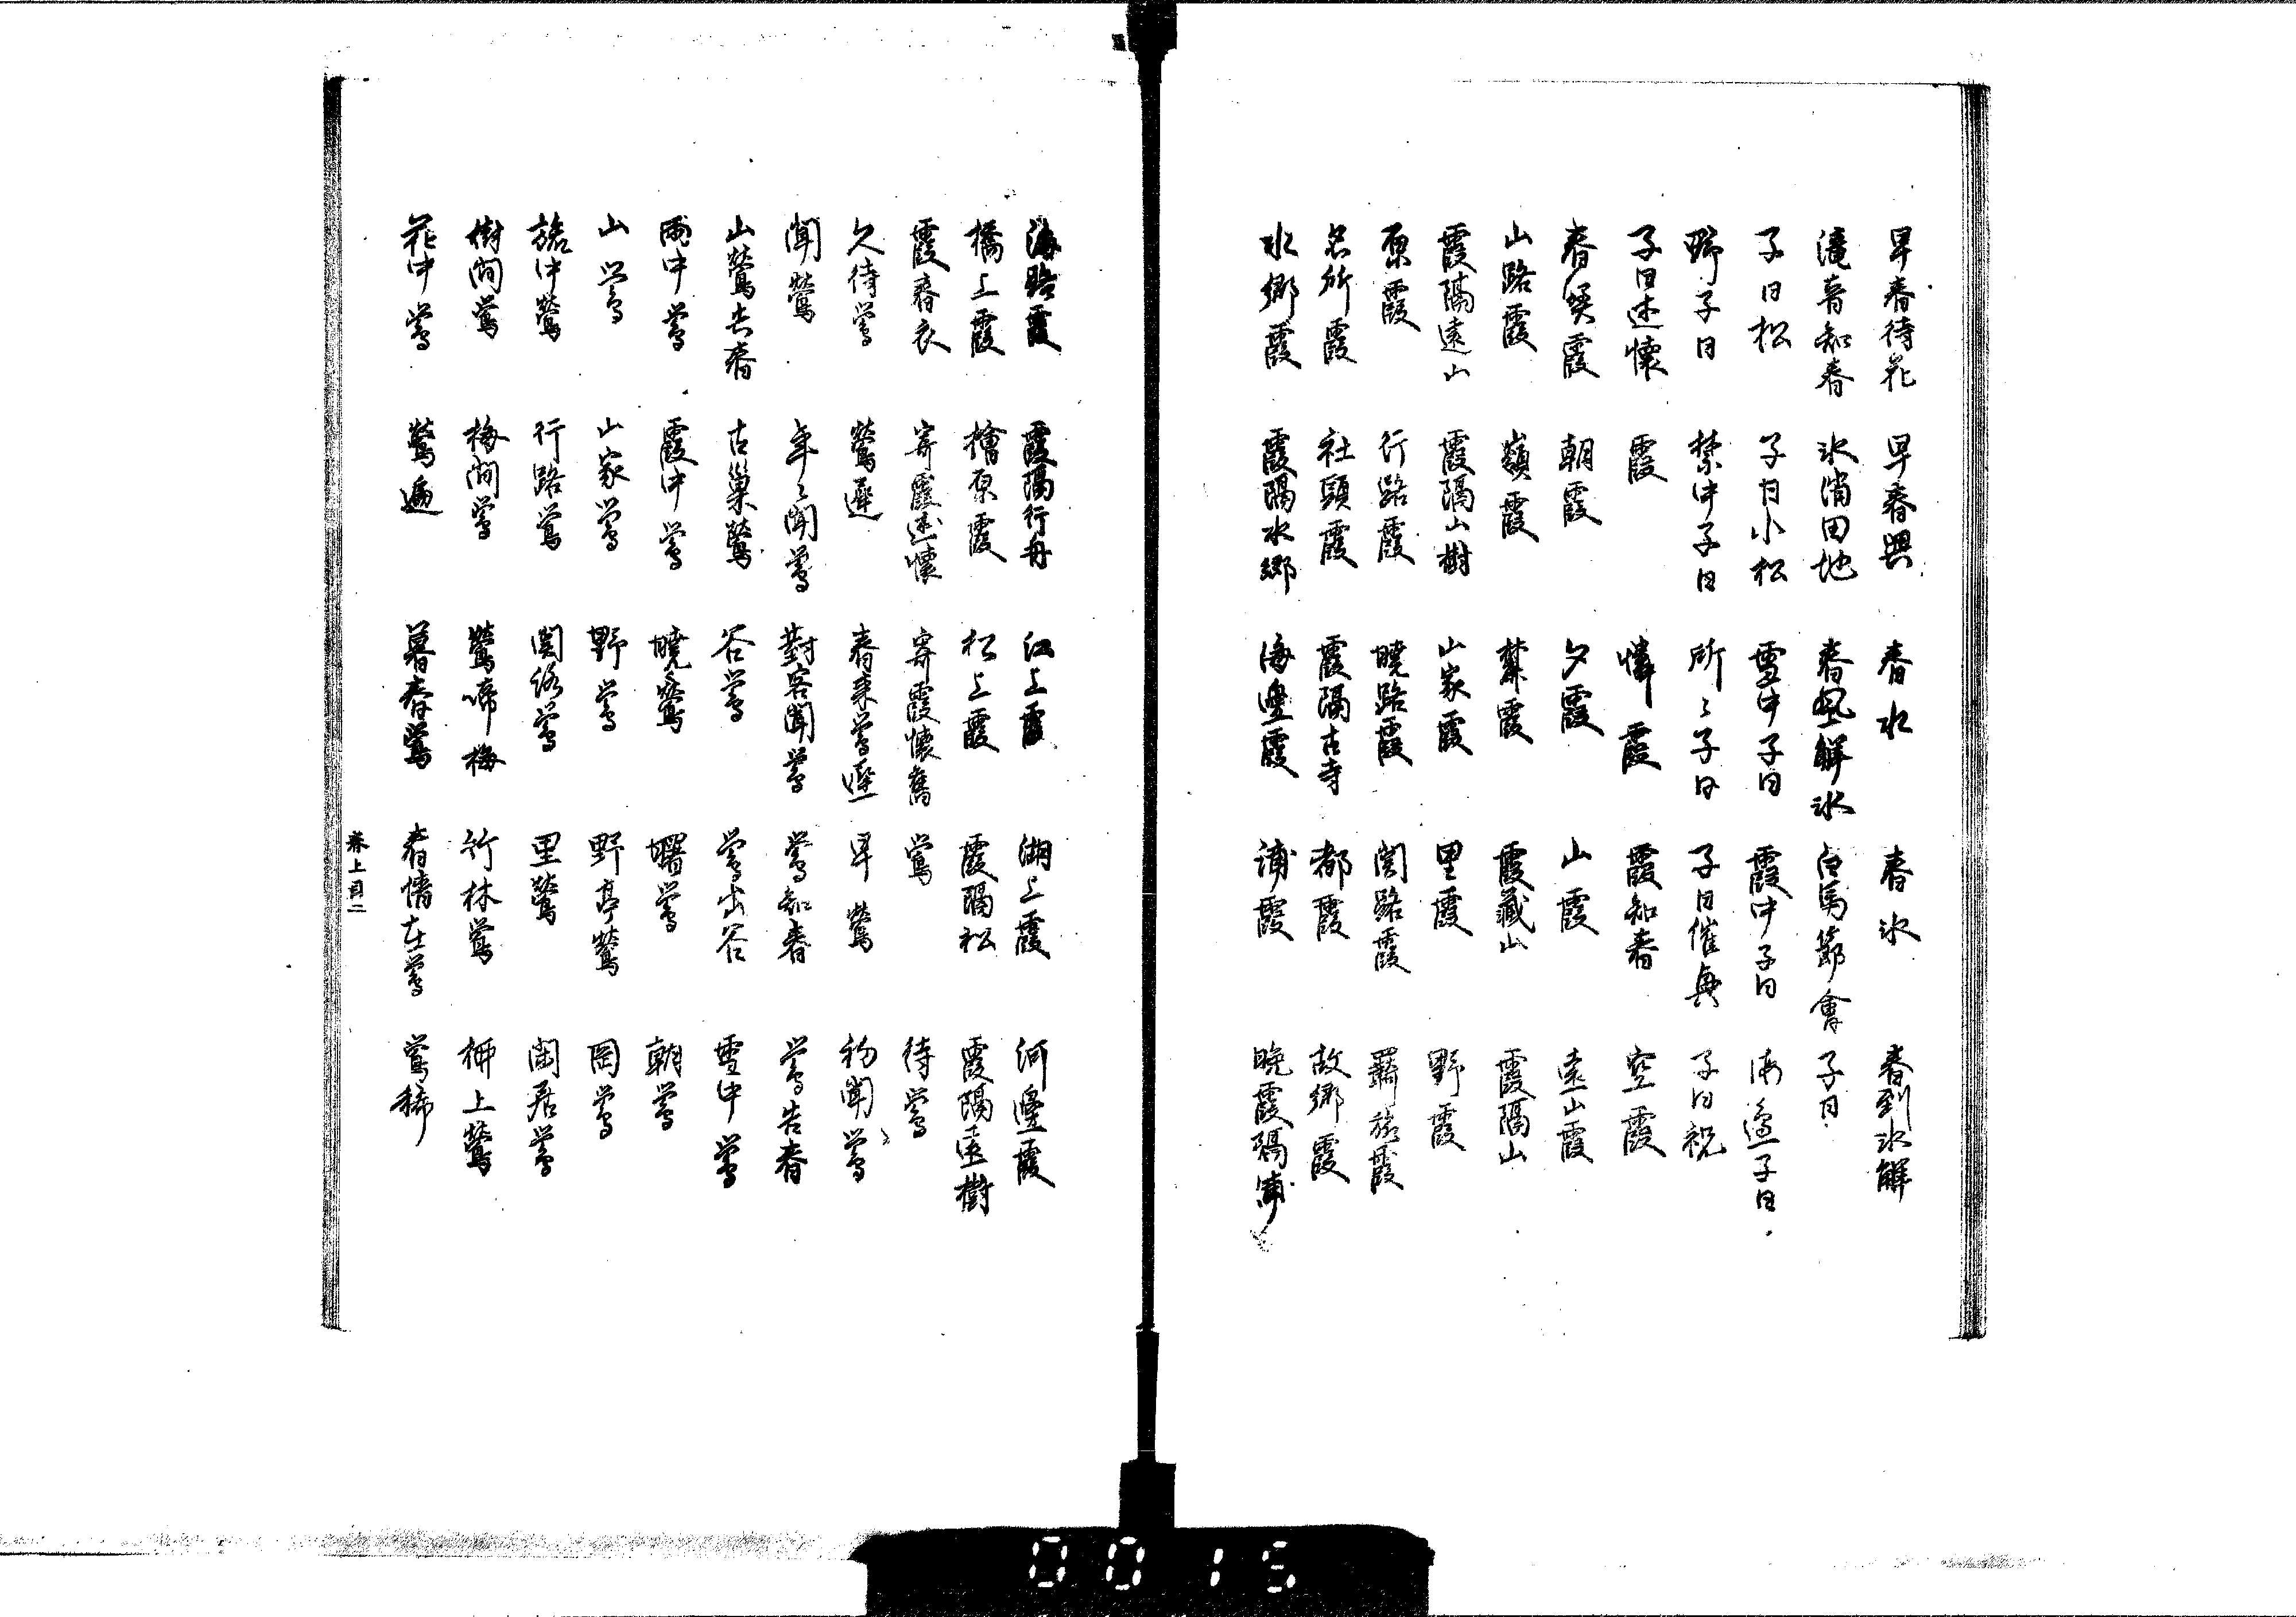 早春待花 早春興 春水 春氷 春到氷解
滝音知春 氷消田地 春風解氷 白馬節會 子日
子日松 子日小松 雪中子日 霞中子日 海邊子日
野子日 禁中子日 所〻子日 子日催興 子日祝
子日述懐 霞 憐霞 霞知春 空霞
春㷟霞 朝霞 夕霞 山霞 遠山霞
山路霞 嶺霞 麓霞 霞蔵山 霞隔山
霞隔遠山 霞隔山樹 山家霞 里霞 野霞
原霞 行路霞 暁路霞 関路霞 羇旅霞
名所霞 社頭霞 霞隔古寺 都霞 故郷霞
水郷霞 霞隔水郷 海邊霞 浦霞 晩霞隔浦
海路霞 霞隔行舟 江上霞 湖上霞 河邊霞
橋上霞 檜原霞 松上霞 霞隔松 霞隔遠樹
霞春衣 寄霞述懐 寄霞懐舊 鶯 待鶯
久待鶯 鶯遅 春来鶯遅 早鶯 初聞鶯
聞鶯 年〻聞鶯 對客聞鶯 鶯知春 鶯告春
山鶯告春 古巣鶯 谷鶯 鶯出谷 雪中鶯
雨中鶯 霞中鶯 暁鶯 曙鶯 朝鶯
山鶯 山家鶯 野鶯 野亭鶯 岡鶯
旅中鶯 行路鶯 関路鶯 里鶯 閑居鶯
樹間鶯 梅間鶯 鶯啼梅 竹林鶯 柳上鶯
花中鶯 鶯遍 暮春鶯 春情在鶯 鶯稀
巻上目二
0015